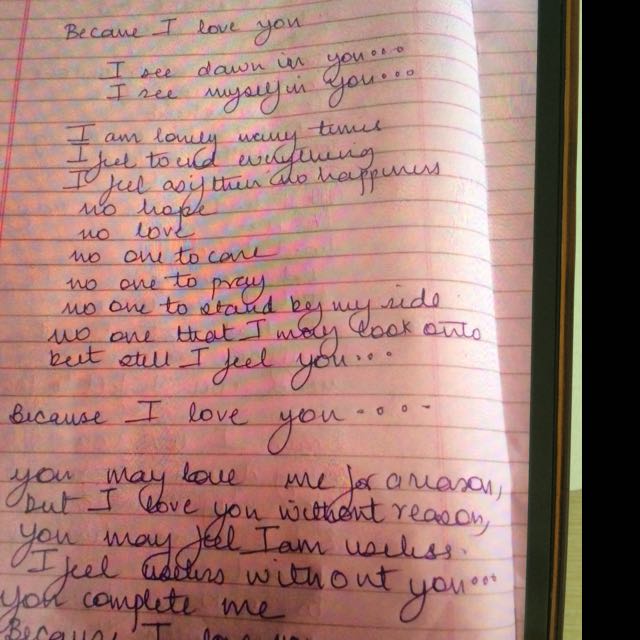 Because I love you
I see dawn in you...
I see myself in you...
I am lonely many times
I feel to end everything
I feel as if their no happiness
no hope
no love
no one to care
no one to pray
no one to stand by my side
no one that I may look onto
but still I feel you...
Because I love you....
you may love me for a reason,
but I love you without reason,
you may feel I am useless.
I feel useless without you...
you complete me
Because I love you